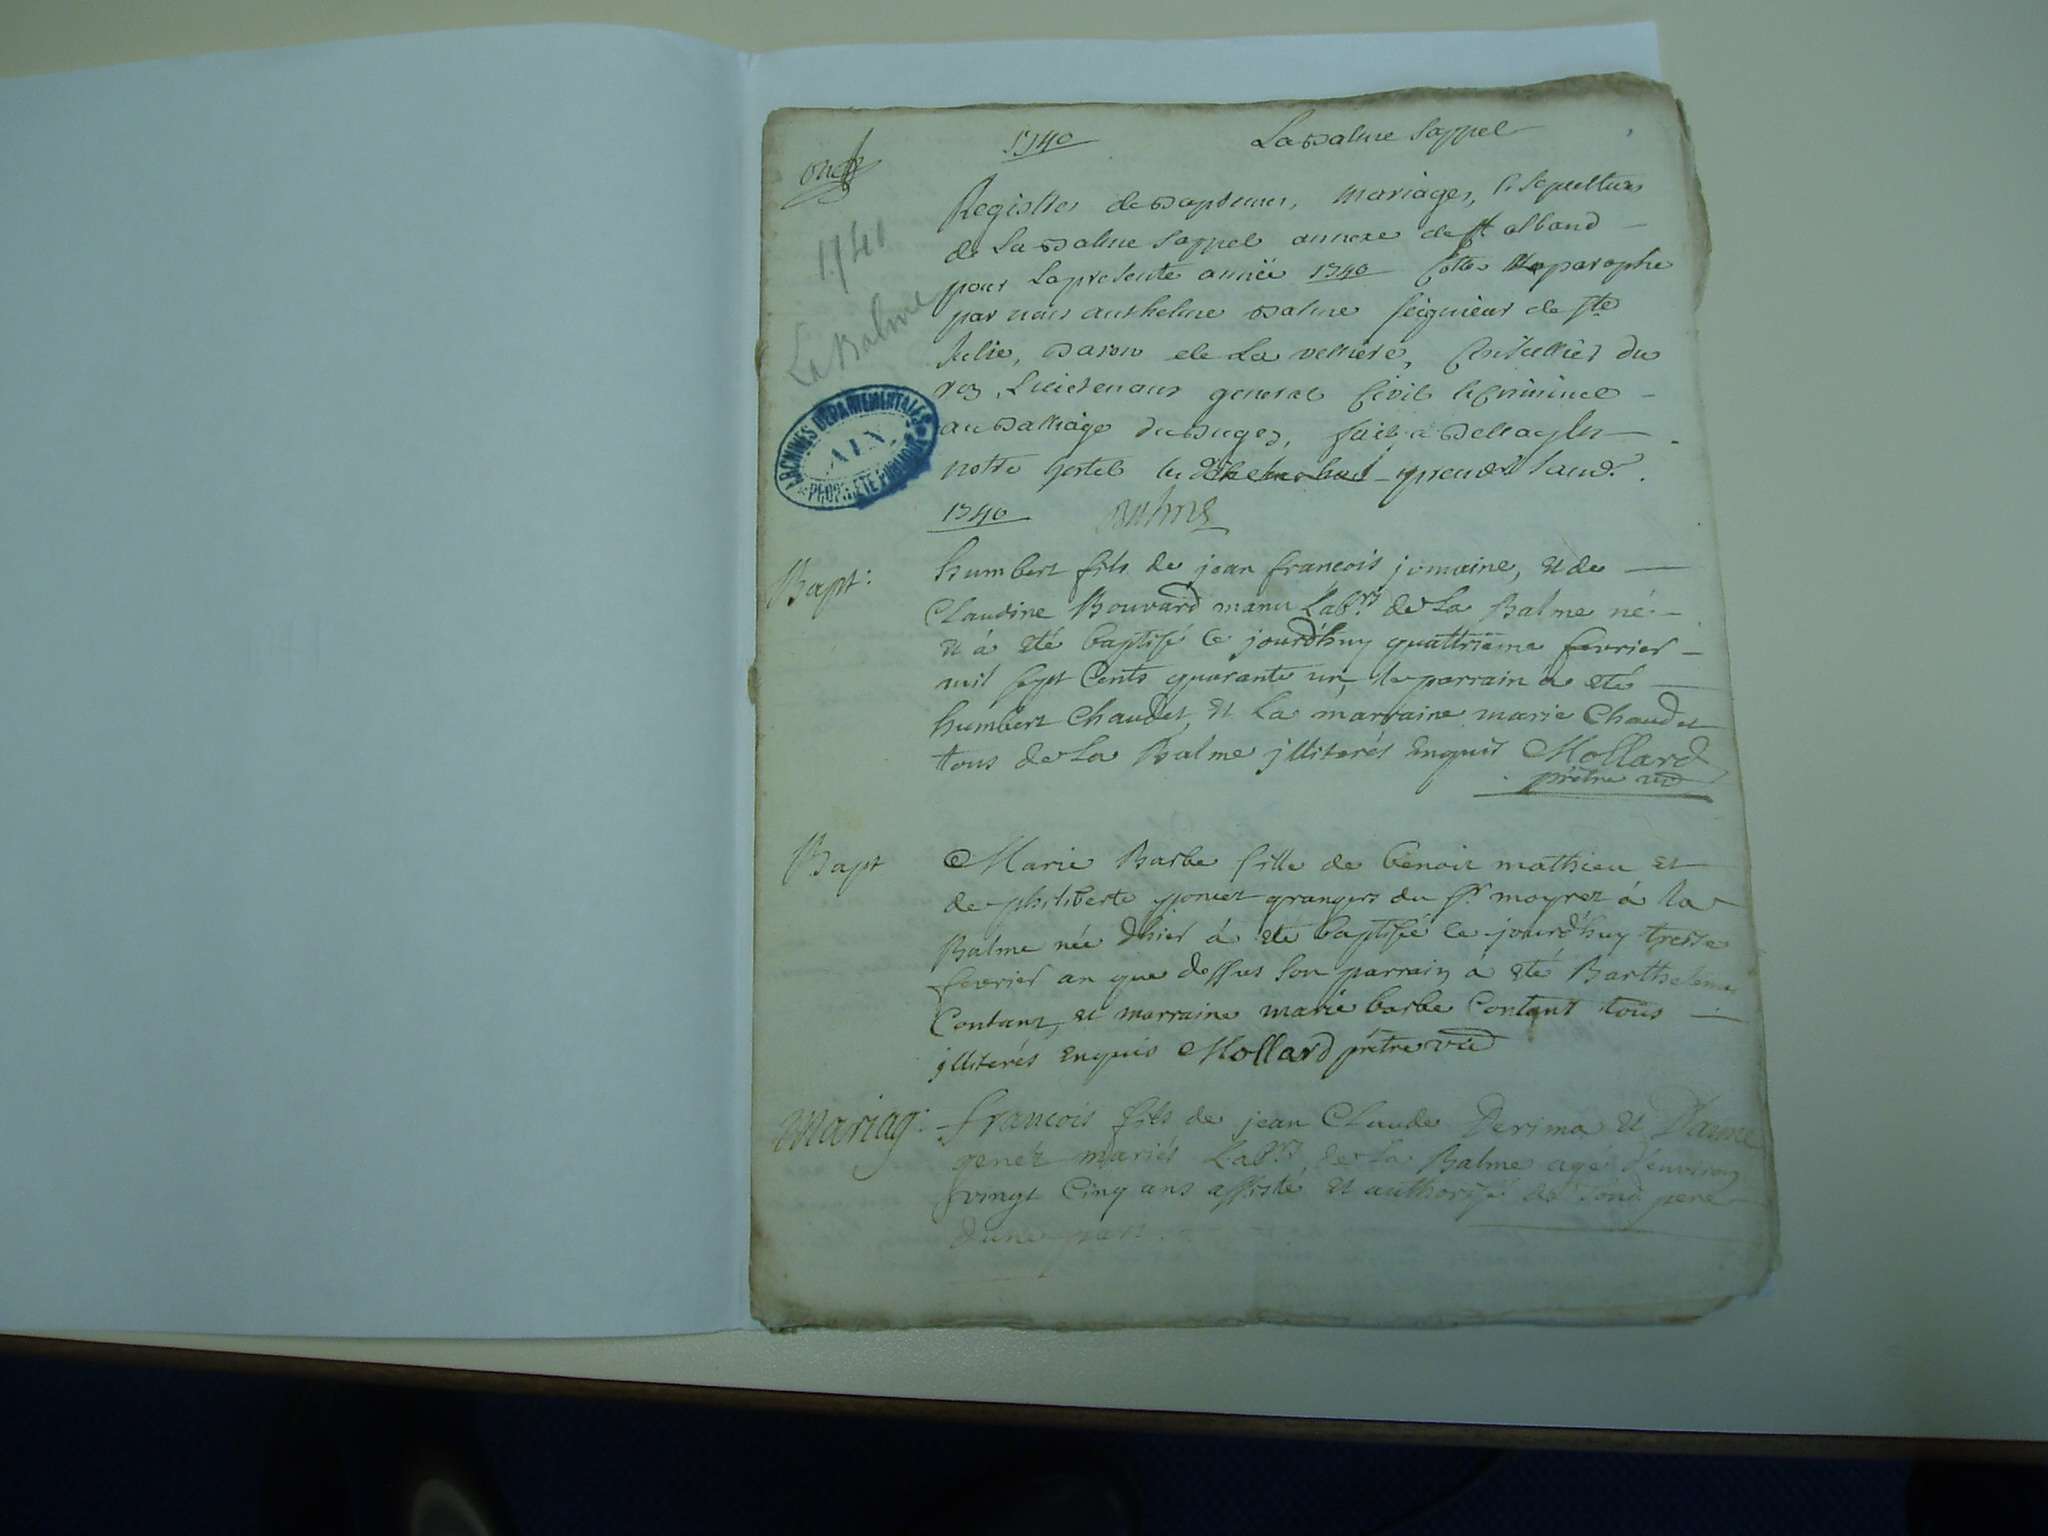 1740 La Balme Sappel
1741
La Balme
Registres de Baptemes, Mariages, & Sepultures
de La Balme Sappel annexe de St alband
pour La presente année 1740 Cotté paraphé
par nous anthelme Balme seigneur de Ste
Julie, Baron de La velliere, Conseillier du
roy, Lieutenant general Civil & Criminel
au Balliage du Bugey, fait à Belley en
notre hostel le
1740 Balme
ARCHIVES DÉPARTEMENTALES
AIN
PROPRIÉTÉ PUBLIQUE
Bapt:
humbert fils de jean francois jomaine, et de
Claudine Bouvard mariés Labrs de La Balme né
et á eté baptisé ce jourd'huy quattrieme fevrier
mil sept Cents quarante un, le parrain a eté
humbert Chaudet, et La marraine marie Chaudet
tous de La Balme jlliterés Enquis Mollard
prêtre
Bapt
Marie Barbe fille de benoit mathieu et
de philiberte poncet grangers du sr moyret á La
Balme née d'hier á eté baptisée ce jourd'huy treise
fevrier an que dessus son parrain á eté Barthelemi
Contant, et marraine marie barbe Contant tous
jlliterés Enquis Mollard prêtre
Mariag:
francois fils de jean Claude Derima et
genet mariés Labrs de La Balme agé d'environ
vingt Cinq ans assisté et authorisé de pere
d'une part